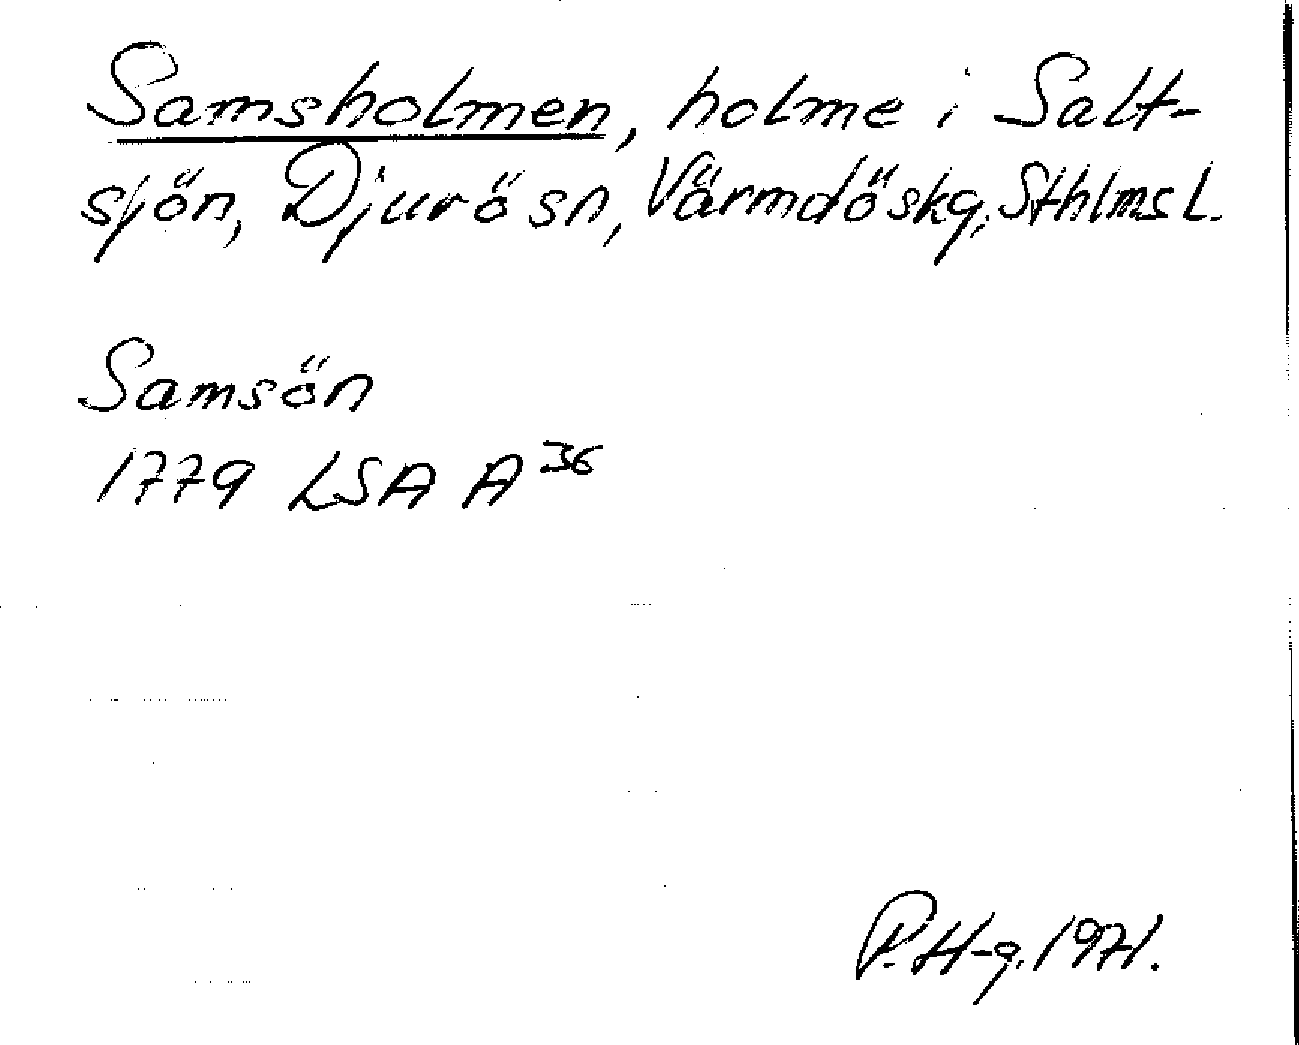 Samsholmen, holme i Salt-
sjön, Djurö sn, Värmdö skg, Sthlms l.
Samsön
1779 LSA A 36
P. H-g. 1971.